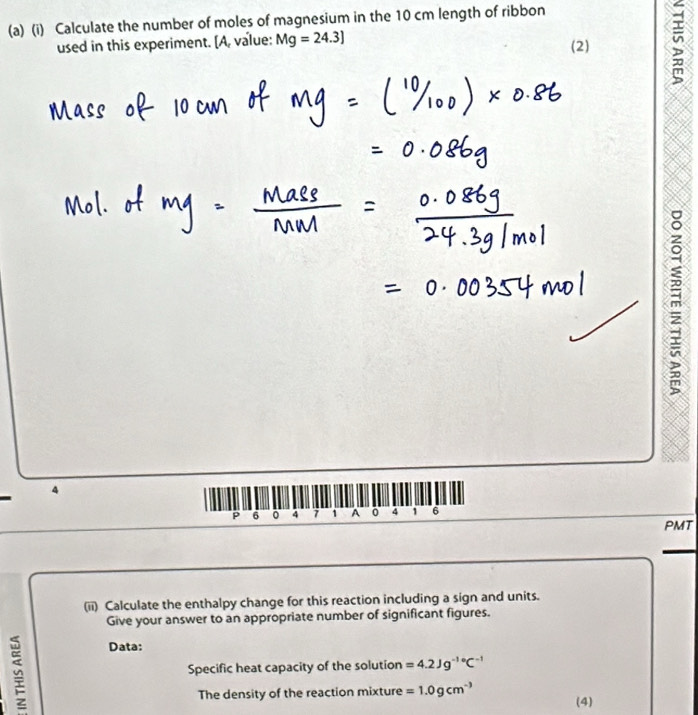 (a) (i) Calculate the number of moles of magnesium in the 10 cm length of ribbon
used in this experiment. [Aᵣ value: Mg = 24.3]
(2)
Mass of 10 cm of mg = (10/100) × 0.86
= 0.086g
Mol. of mg = Mass/MM = 0.086g/24.3g/mol
= 0.00354 mol
THIS AREA
DO NOT WRITE IN THIS AREA
4
P60471A0416
PMT
(ii) Calculate the enthalpy change for this reaction including a sign and units.
Give your answer to an appropriate number of significant figures.
Data:
Specific heat capacity of the solution = 4.2 J g⁻¹ °C⁻¹
The density of the reaction mixture = 1.0 g cm⁻³
(4)
IN THIS AREA